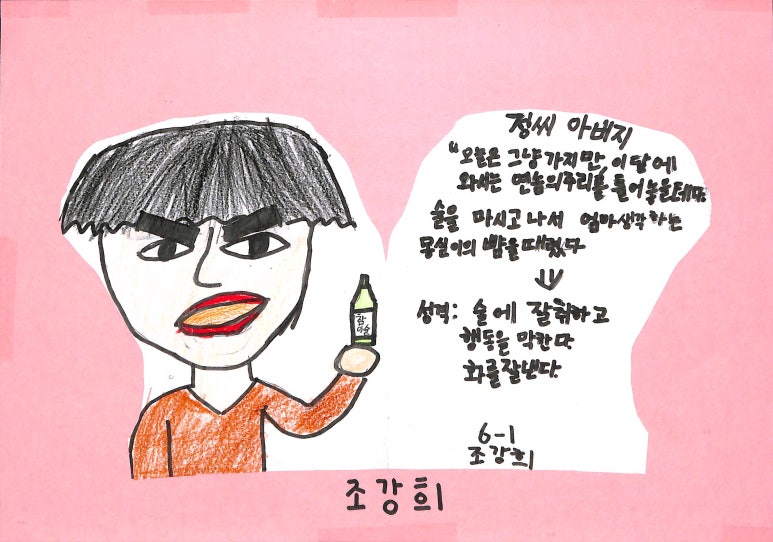 정씨 아버지
"오늘은 그냥 가지만, 이 담에
와서는 연놈의 주리를 틀어 놓을테다.
술을 마시고 나서 엄마 생각하는
몽실이의 뺨을 때렸다
성격: 술에 잘취하고
행동을 막한다
화를 잘낸다.
6-1
조강희
조강희